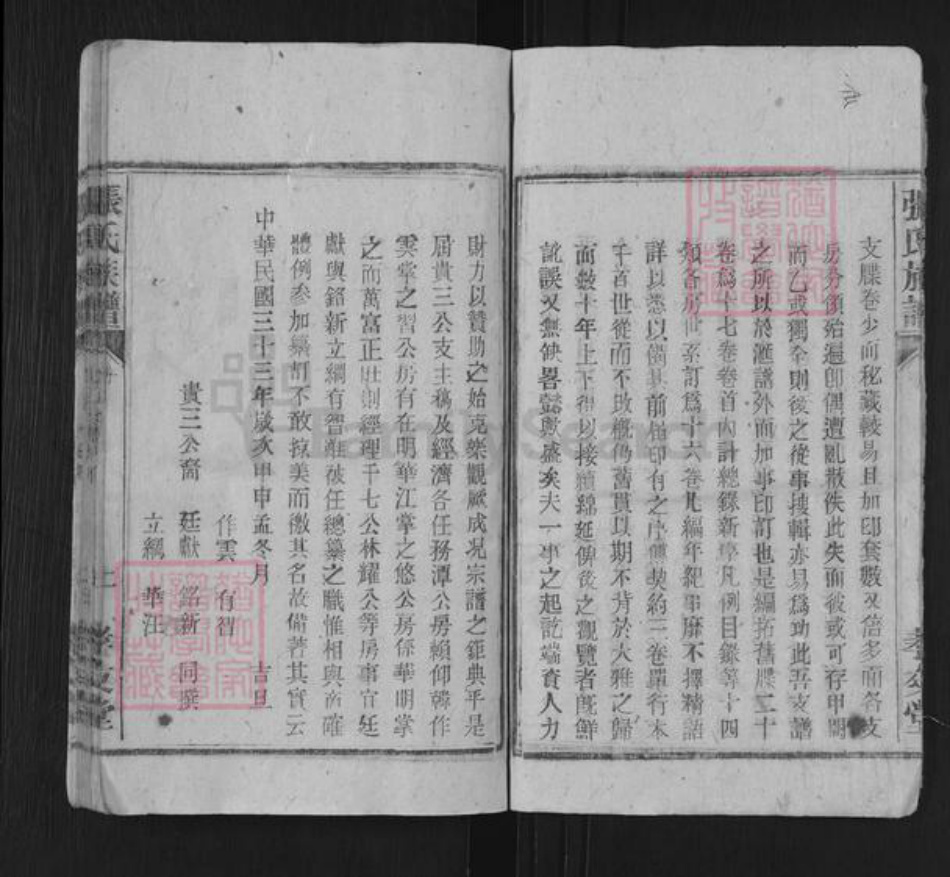 張氏族譜
支牒卷少而秘藏較易且加印套數又倍多而各支
房分領殆遍即偶遭亂散佚此失而彼或可存甲闕
而乙或獨全則後之從事搜輯亦易為功此吾支譜
之所以於滙譜外而加事印訂也是編拓舊牒二十
卷爲十七卷卷首內計總錄新序凡例目錄等十四
類各房世系訂爲十六卷凡編年紀事靡不擇精語
詳以悉以備其前屆印有之序傳契約三卷單行本
千首世從而不改概仍舊貫以期不背於大雅之歸
而數十年上下得以接續綿延俾後之觀覽者旣鮮
訛誤又無缺畧懿歟盛矣夫一事之起訖端資人力
財力以贊助之始克樂觀厥成况宗譜之鉅典乎是
屆貴三公支主稿及經濟各任務潭公房賴仰韓作
雲掌之習公房有在明華江掌之悠公房係華明掌
之而萬富正財則經理千七公林耀公等房事宜廷
獻與銘新立綱有智雖被任總纂之職惟相與商確
體例參加藥訂不敢掠美而徵其名故備著其實云
中華民國三十三年歲次甲申孟冬月 吉旦
作雲 有智
貴三公裔 廷獻 銘新 同撰
立綱 華汪
張氏族譜
孝友堂